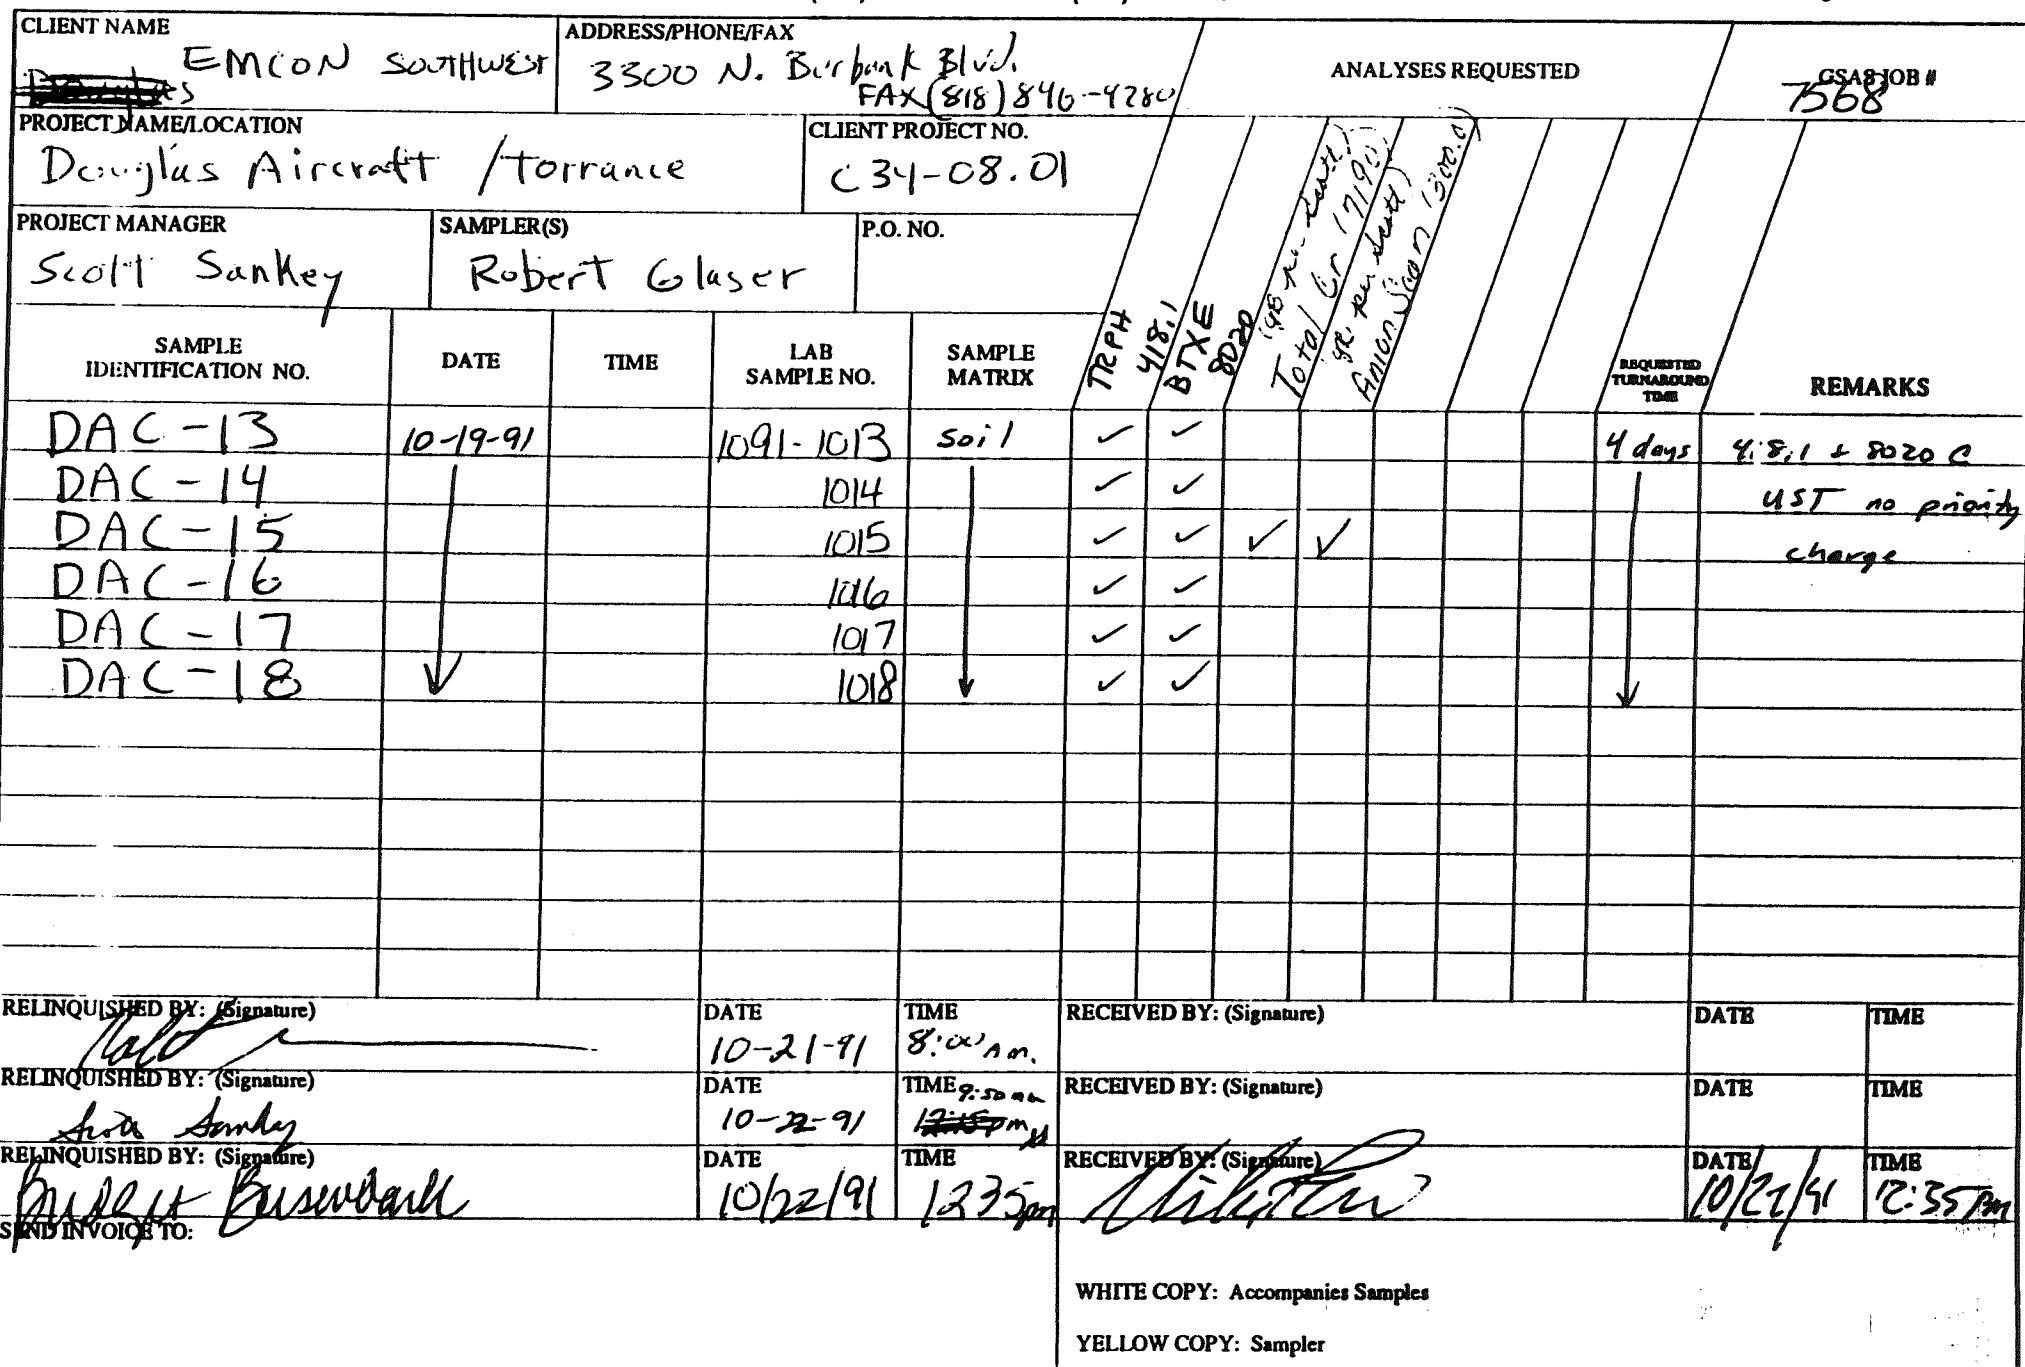 CLIENT NAME
EMCON SOUTHWEST
ADDRESS/PHONE/FAX
3300 N. Burbank Blvd.
FAX (818) 846-4280
ANALYSES REQUESTED
GSAS JOB #
7568
PROJECT NAME/LOCATION
Douglas Aircraft /Torrance
CLIENT PROJECT NO.
C34-08.01
PROJECT MANAGER
Scott Sankey
SAMPLER(S)
Robert Glaser
P.O. NO.
SAMPLE IDENTIFICATION NO.
DATE
TIME
LAB SAMPLE NO.
SAMPLE MATRIX
TRPH 418.1
BTXE 8020
Total Cr (7190)
Anion Scan (300.0)
REQUESTED TURNAROUND TIME
REMARKS
DAC-13 10-19-91 1091-1013 soil ✓ ✓ 4 days 418.1 + 8020 @
DAC-14 1014 ✓ ✓ UST no priority
DAC-15 1015 ✓ ✓ ✓ ✓ charge
DAC-16 1016 ✓ ✓
DAC-17 1017 ✓ ✓
DAC-18 1018 ✓ ✓
RELINQUISHED BY: (Signature)
DATE
10-21-91
TIME
8:00 Am.
RECEIVED BY: (Signature)
DATE
TIME
RELINQUISHED BY: (Signature)
Scott Sankey
DATE
10-22-91
TIME 9:50 am
RECEIVED BY: (Signature)
DATE
TIME
RELINQUISHED BY: (Signature)
DATE
10/22/91
TIME
1235pm
RECEIVED BY: (Signature)
DATE
10/22/91
TIME
12:35 pm
SEND INVOICE TO:
WHITE COPY: Accompanies Samples
YELLOW COPY: Sampler